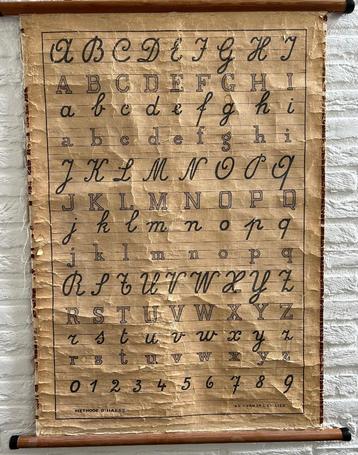 A B C D E F G H I
A B C D E F G H I
a b c d e f g h i
a b c d e f g h i
J K L M N O P Q
J K L M N O P Q
j k l m n o p q
j k l m n o p q
R S T U V W X Y Z
R S T U V W X Y Z
r s t u v w x y z
r s t u v w x y z
0 1 2 3 4 5 6 7 8 9
METHODE D'HAESE